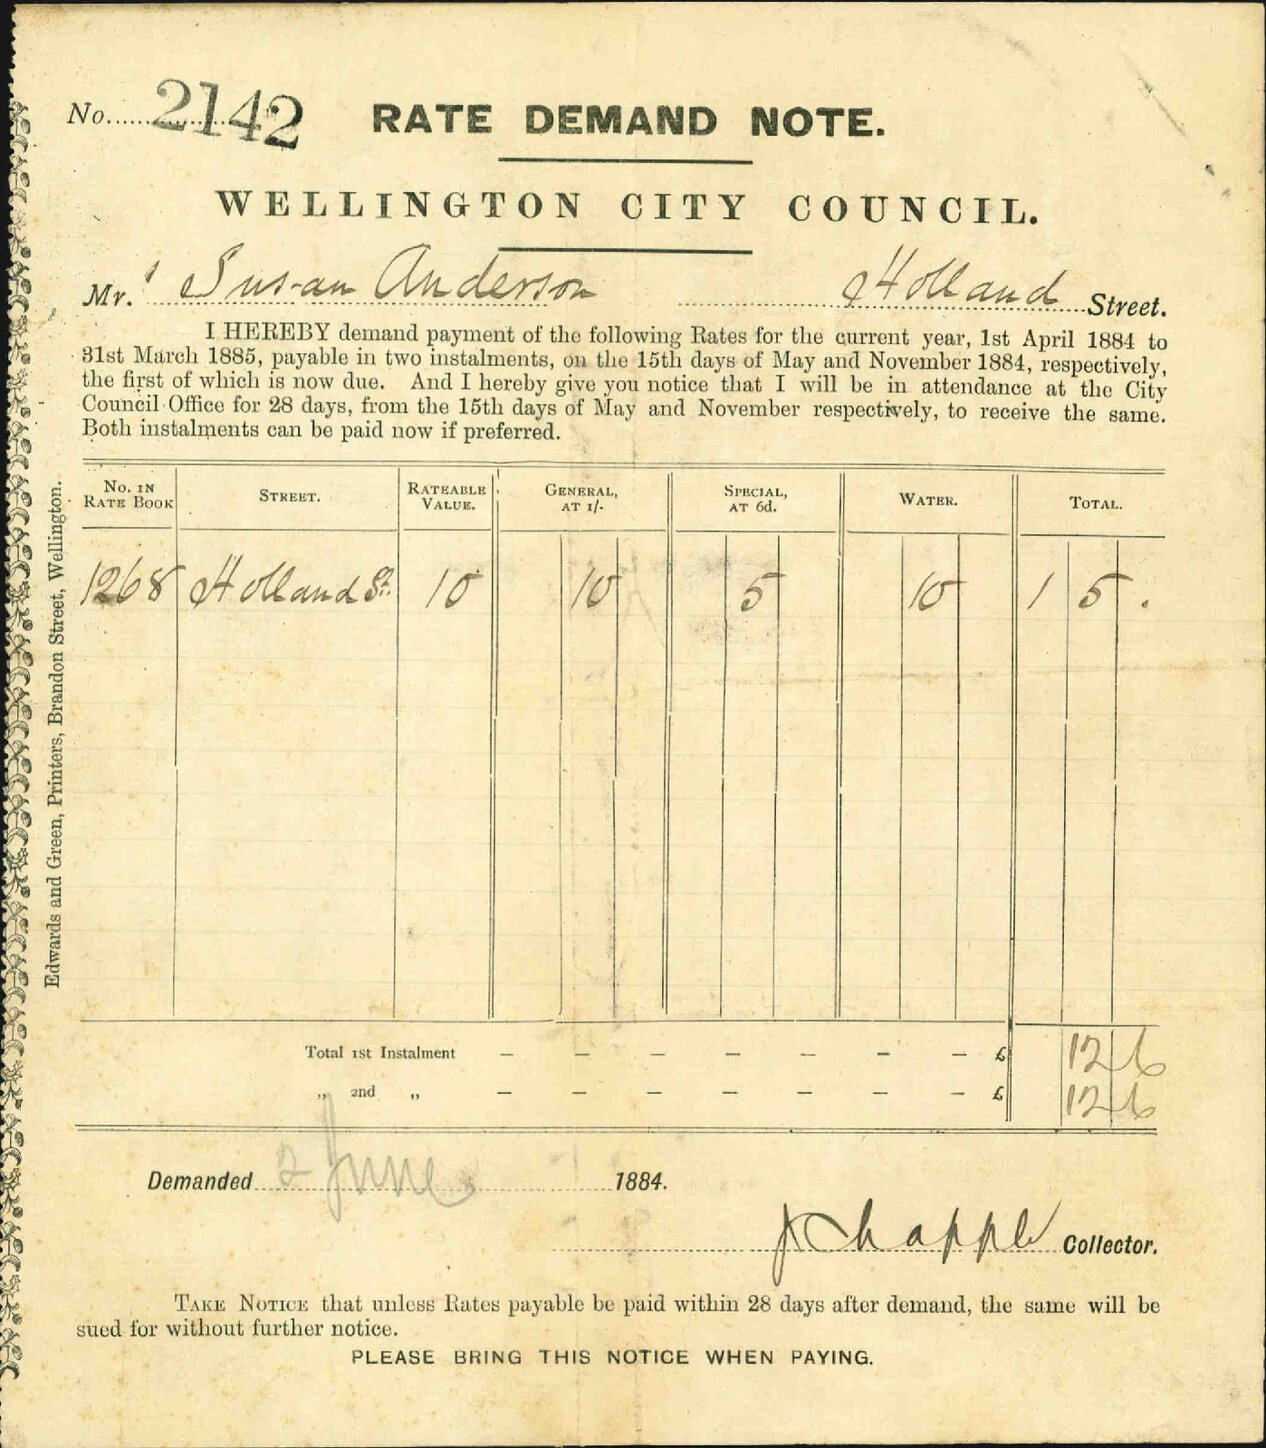 No. 2142 RATE DEMAND NOTE.
WELLINGTON CITY COUNCIL.
Mr.s Susan Anderson Holland Street.
I HEREBY demand payment of the following Rates for the current year, 1st April 1884 to
31st March 1885, payable in two instalments, on the 15th days of May and November 1884, respectively,
the first of which is now due. And I hereby give you notice that I will be in attendance at the City
Council Office for 28 days, from the 15th days of May and November respectively, to receive the same.
Both instalments can be paid now if preferred.
No. in Rate Book Street. Rateable Value. General, at 1/- Special, at 6d. Water. Total.
1268 Holland St. 10 10 5 10 1 5 .
Total 1st Instalment — — — — — — — £ 12 6
„ 2nd „ — — — — — — — £ 12 6
Demanded 2 June 1884.
J Chapple Collector.
Take Notice that unless Rates payable be paid within 28 days after demand, the same will be
sued for without further notice.
PLEASE BRING THIS NOTICE WHEN PAYING.
Edwards and Green, Printers, Brandon Street, Wellington.